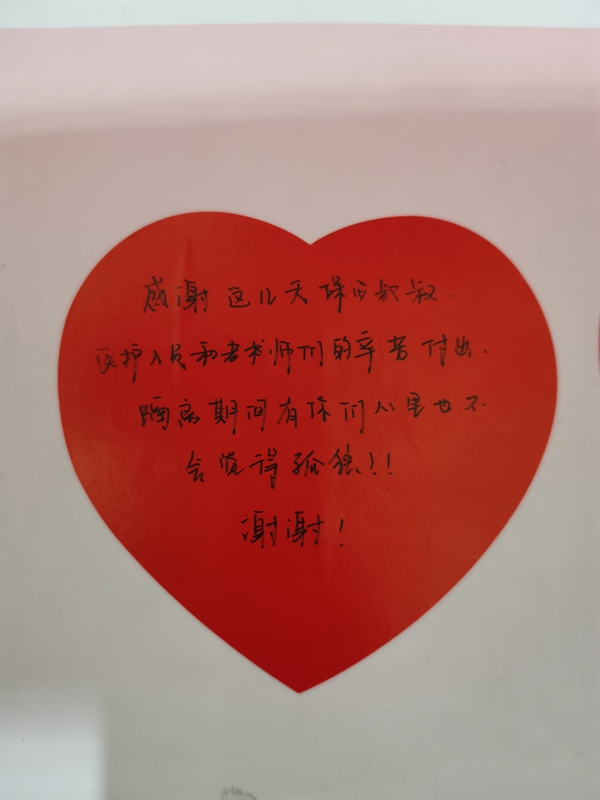 感谢这几天保安叔叔.
医护人员和老师们的辛苦付出.
隔离期间有你们心里也不
会觉得孤独!!
谢谢!